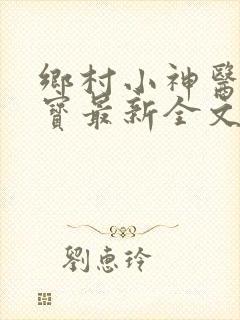 鄉村小神醫
寶最新全文
劉惠玲